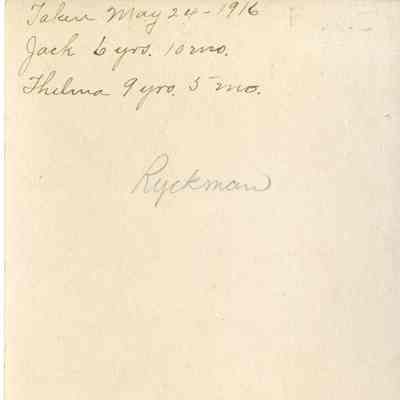 Taken May 24-1916
Jack 6 yrs. 10 mo.
Thelma 9 yrs. 5 mo.
Ryckman